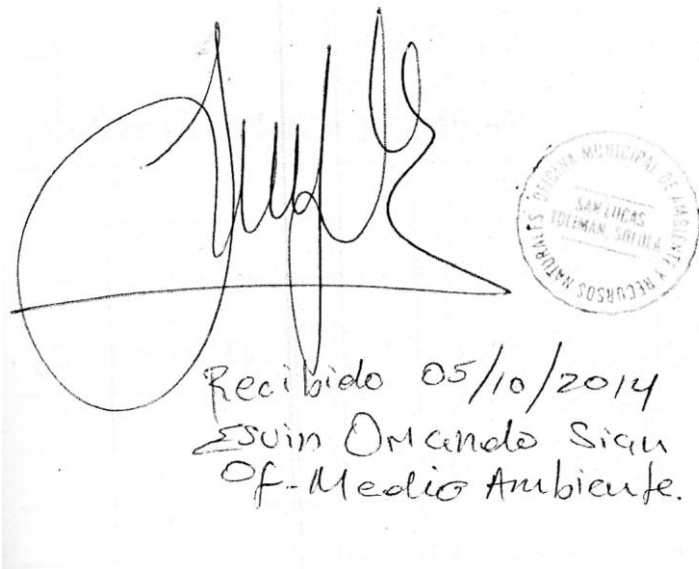 OFICINA MUNICIPAL DE AMBIENTE Y RECURSOS NATURALES
SAN LUCAS
TOLIMAN, SOLOLA
Recibido 05/10/2014
Esvin Orlando Sian
Of-Medio Ambiente.